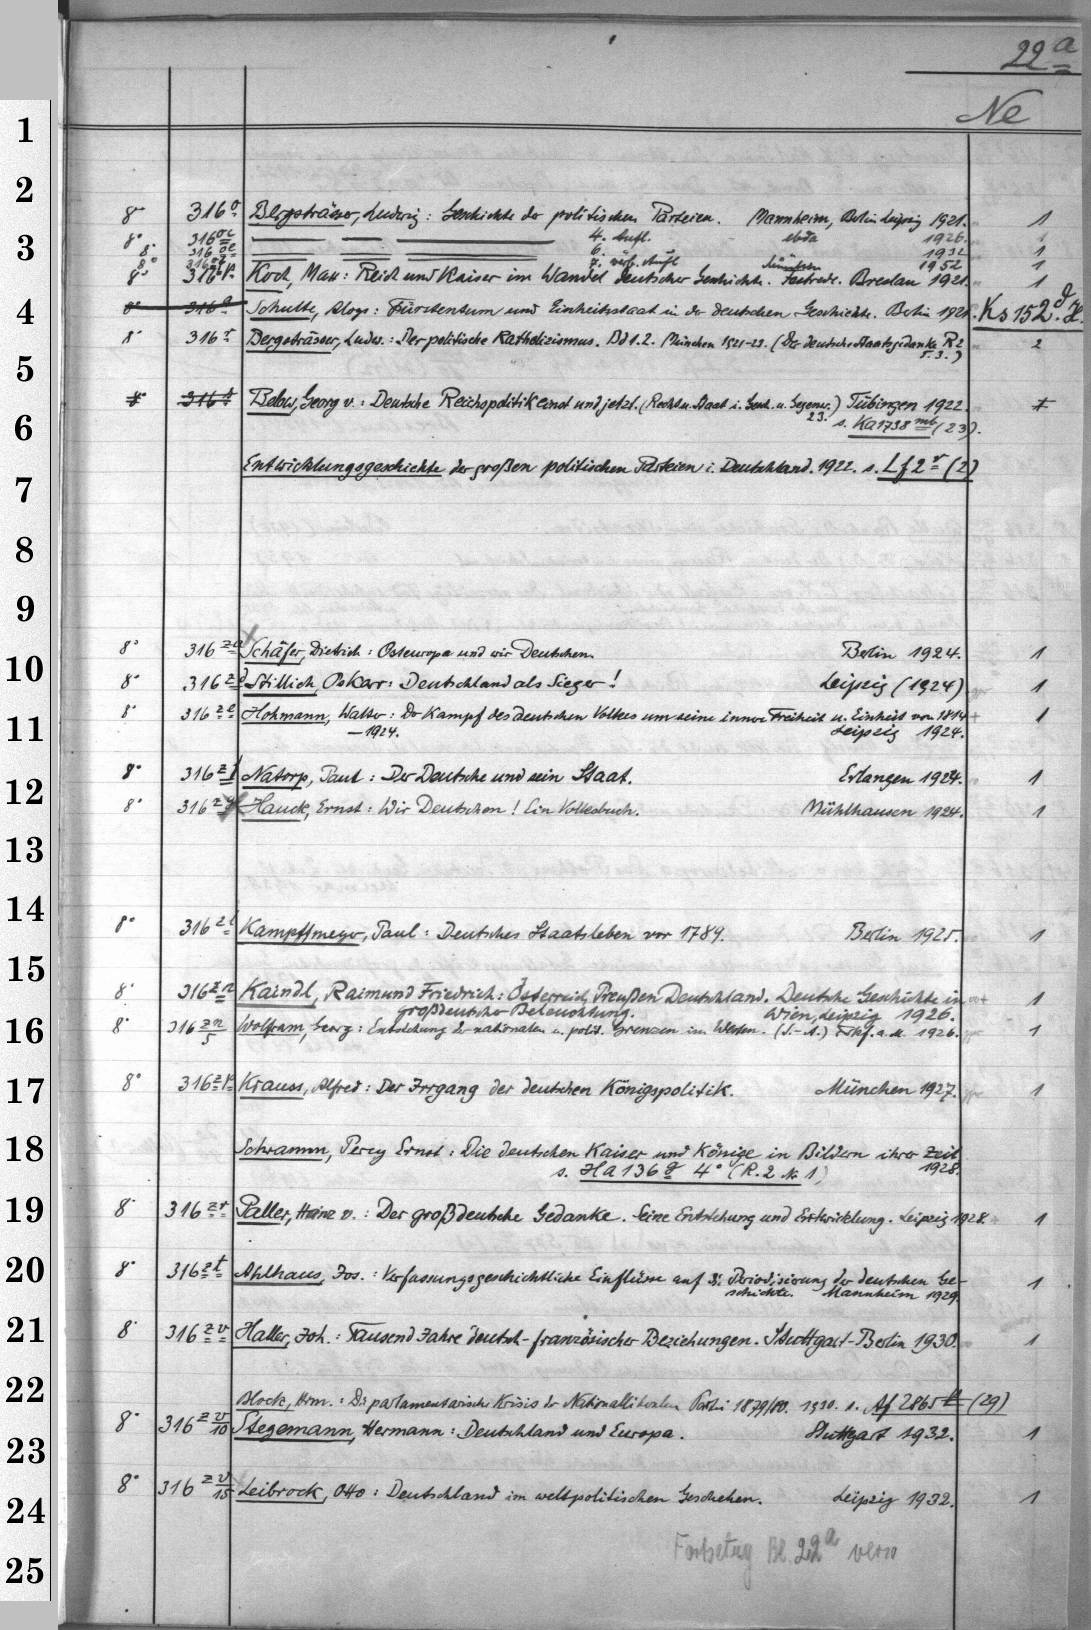 22a
Ne
1
2
3
4
5
6
7
8
9
10
11
12
13
14
15
16
17
18
19
20
21
22
23
24
25
8° 316 o Bergsträsser, Ludwig: Geschichte der politischen Parteien. Mannheim, Berlin Leipzig 1921. 1
8° 316 oc — — — 4. Aufl. ebda 1926.
8° 316 oe 6. 1932 1
8° 7. völl. Aufl München 1952 1
8° 316 p Koch, Max: Reich und Kaiser im Wandel deutscher Geschichte. Festrede. Breslau 1921. 1
8° 316 q Schulte, Aloys: Fürstentum und Einheitsstaat in der deutschen Geschichte. Berlin 1921. Ks 152
8° 316 r Bergsträsser, Ludw.: Der politische Katholizismus. Bd 1.2. München 1921-23. (Der deutsche Staatsgedanke R 2 2
5. 3.)
8° 316 Below, Georg v.: Deutsche Reichspolitik einst und jetzt. (Recht u. Staat i. Gesch. u. Gegenw. 23.) Tübingen 1922. 1
s. Ka 1738 mb (23).
Entwicklungsgeschichte der großen politischen Parteien i. Deutschland. 1922. s. Lf 2 r (2)
8° 316 za Schäfer, Dietrich: Osteuropa und wir Deutschen. Berlin 1924. 1
8° 316 zd Stillich, Oskar: Deutschland als Sieger! Leipzig (1924) 1
8° 316 ze Hohmann, Walter: Der Kampf des deutschen Volkes um seine innere Freiheit u. Einheit von 1814 1
—1924. Leipzig 1924.
8° 316 zf Natorp, Paul: Der Deutsche und sein Staat. Erlangen 1924. 1
8° 316 zg Hauck, Ernst: Wir Deutschen! Ein Volksbuch. Mühlhausen 1924. 1
8° 316 zl Kampffmeyer, Paul: Deutsches Staatsleben vor 1789. Berlin 1925. 1
8° 316 zn Kaindl, Raimund Friedrich: Österreich, Preußen Deutschland. Deutsche Geschichte in 1
großdeutscher Beleuchtung. Wien, Leipzig 1926.
8° 316 zn/5 Wolfram, Georg: Entstehung der nationalen u. polit. Grenzen im Westen. (S.-A.) Frkf. a. M. 1926. 1
8° 316 zp Krauss, Alfred: Der Irrgang der deutschen Königspolitik. München 1927. 1
Schramm, Percy Ernst: Die deutschen Kaiser und Könige in Bildern ihrer Zeit
s. Ha 136 g 4° (R. 2 Nr 1) 1928.
8° 316 zr Paller, Heinz v.: Der großdeutsche Gedanke. Seine Entstehung und Entwicklung. Leipzig 1928. 1
8° 316 zt Ahlhaus, Jos.: Verfassungsgeschichtliche Einflüsse auf d. Periodisierung der deutschen Ge- 1
schichte. Mannheim 1929.
8° 316 zv Haller, Joh.: Tausend Jahre deutsch-französischer Beziehungen. Stuttgart-Berlin 1930. 1
Block, Hrm.: Die parlamentarische Krisis der Nationalliberalen Partei 1879/80. 1930. s. Af 2865 (29)
8° 316 zv/10 Stegemann, Hermann: Deutschland und Europa. Stuttgart 1932. 1
8° 316 zv/15 Leibrock, Otto: Deutschland im weltpolitischen Geschehen. Leipzig 1932. 1
Fortsetzg Bl. 22a verso